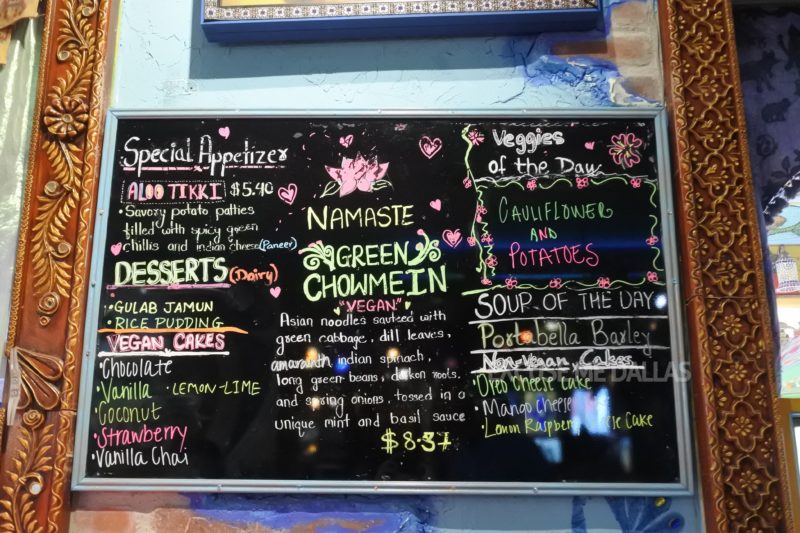 Special Appetizer
ALOO TIKKI $5.40
• Savory potato patties
filled with spicy green
chillis and indian cheese (Paneer)
DESSERTS (Dairy)
• GULAB JAMUN
• RICE PUDDING
VEGAN CAKES
• Chocolate
• Vanilla • LEMON-LIME
• Coconut
• Strawberry
• Vanilla Chai
NAMASTE
GREEN
CHOWMEIN
"VEGAN"
Asian noodles sauteed with
green cabbage, dill leaves,
amaranth indian spinach,
long green beans, daikon roots,
and spring onions, tossed in a
unique mint and basil sauce
$8.37
Veggies
of the Day
CAULIFLOWER
AND
POTATOES
SOUP OF THE DAY
Portabella Barley
Non-Vegan Cakes
• Oreo Cheese Cake
• Mango Cheese
• Lemon Raspberry Cheese Cake
DALLAS